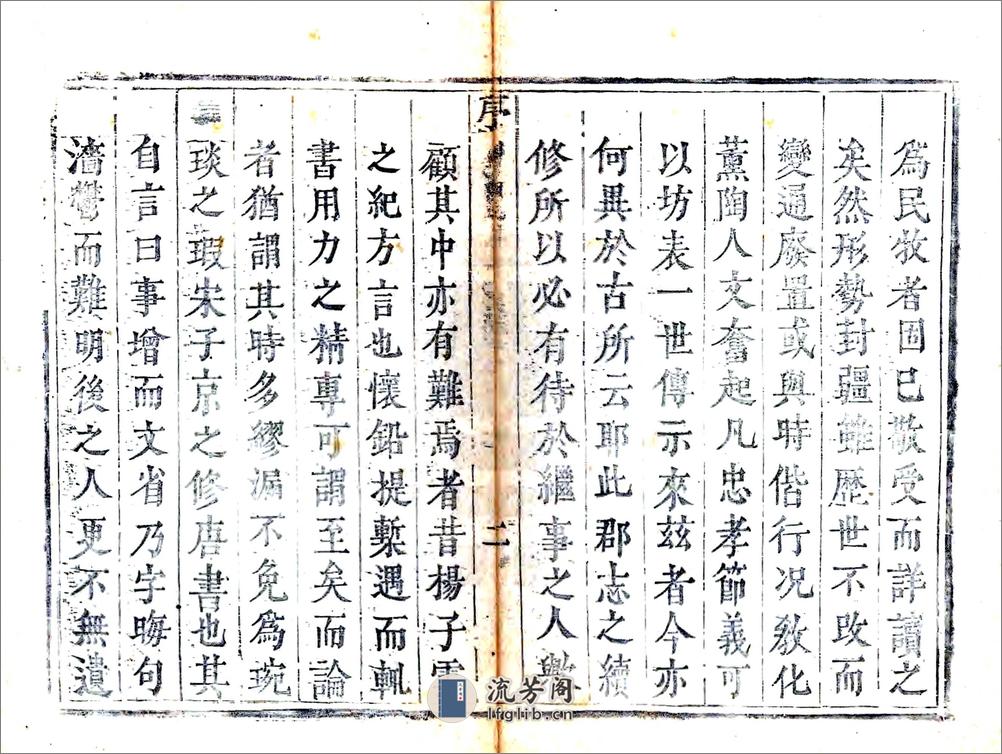 為民牧者固已敬受而詳讀之
矣然形勢封疆雖歷世不改而
變通廢置或與時偕行况敎化
薰陶人文奮起凡忠孝節義可
以坊表一世傳示來兹者今亦
何異於古所云耶此郡志之續
修所以必有待於繼事之人歟
序
二
顧其中亦有難焉者昔楊子雲
之紀方言也懷鉛提槧遇而輒
書用力之精專可謂至矣而論
者猶謂其時多繆漏不免為琬
琰之瑕宋子京之修唐書也其
自言曰事增而文省乃字晦句
濇鬱而難明後之人更不無遺
流芳阁
lfglib.cn